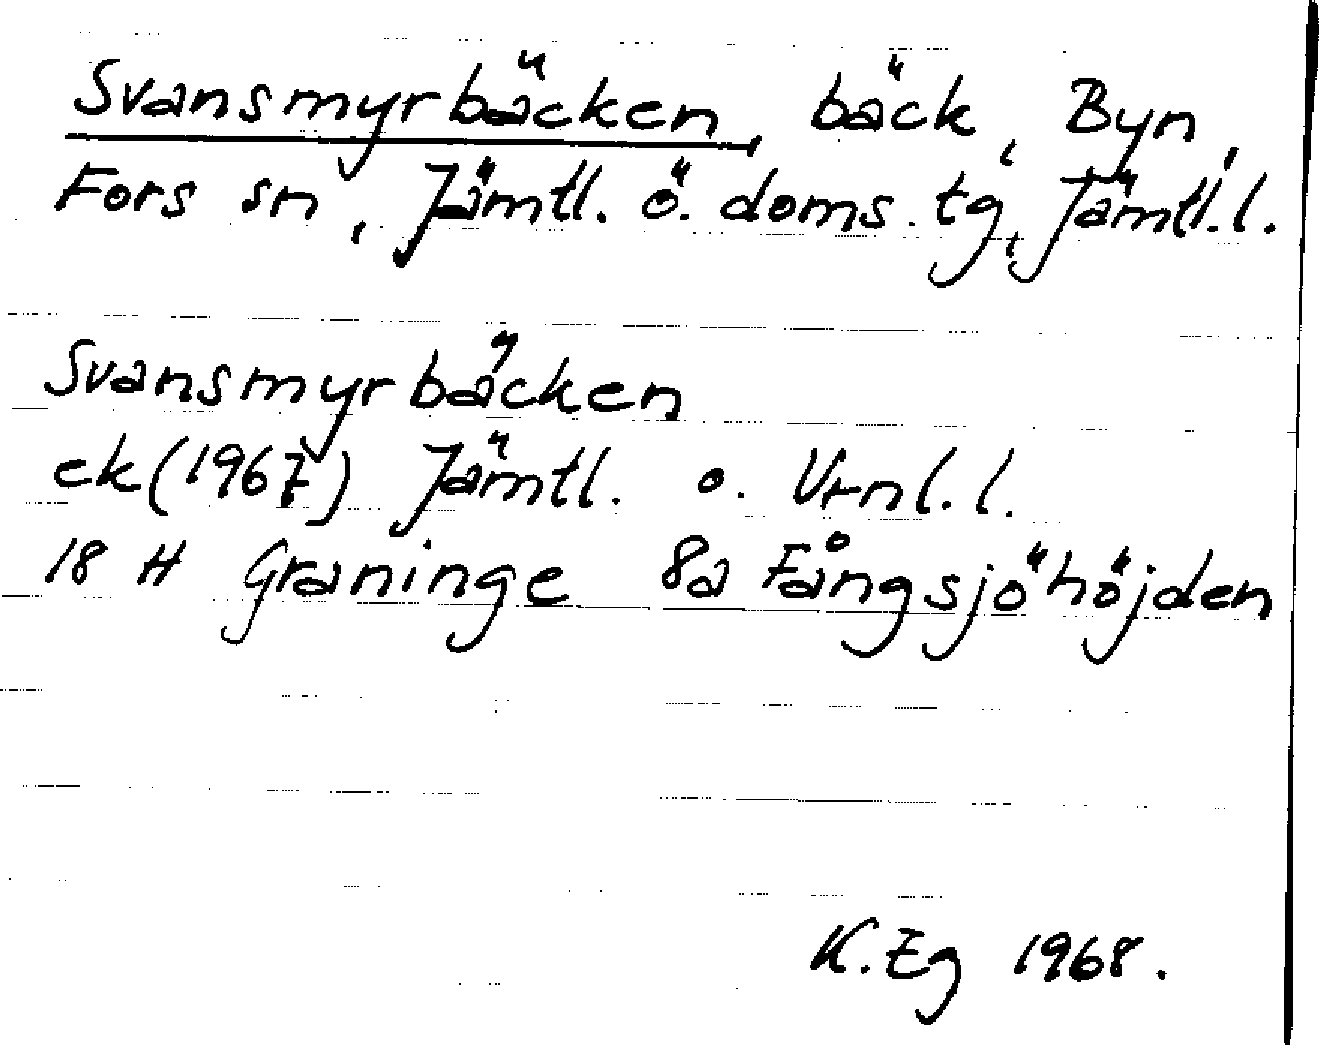 Svansmyrbäcken, bäck, Byn,
Fors sn, Jämtl. ö. doms. tg, Jämtl.l.
Svansmyrbäcken
ek(1967) Jämtl. o. Vrnl.l.
18 H Graninge 8a Fångsjöhöjden
K.Eg 1968.